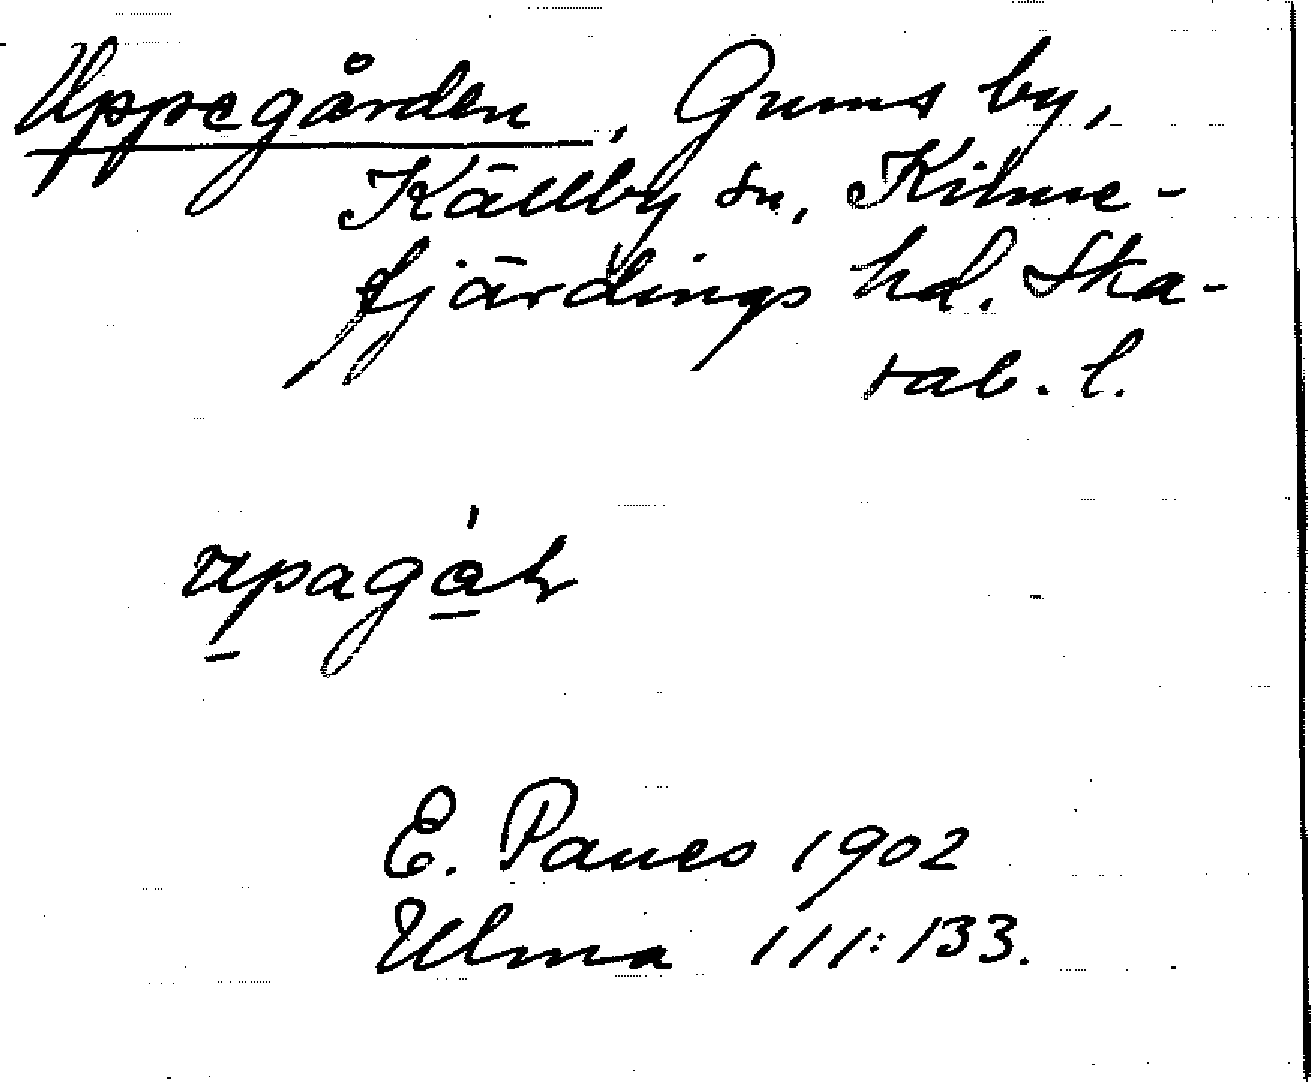 Uppegården, Gums by,
Källby sn, Kinne-
fjärdings hd. Ska-
rab. l.
E. Paues 1902
Ulma 111:133.